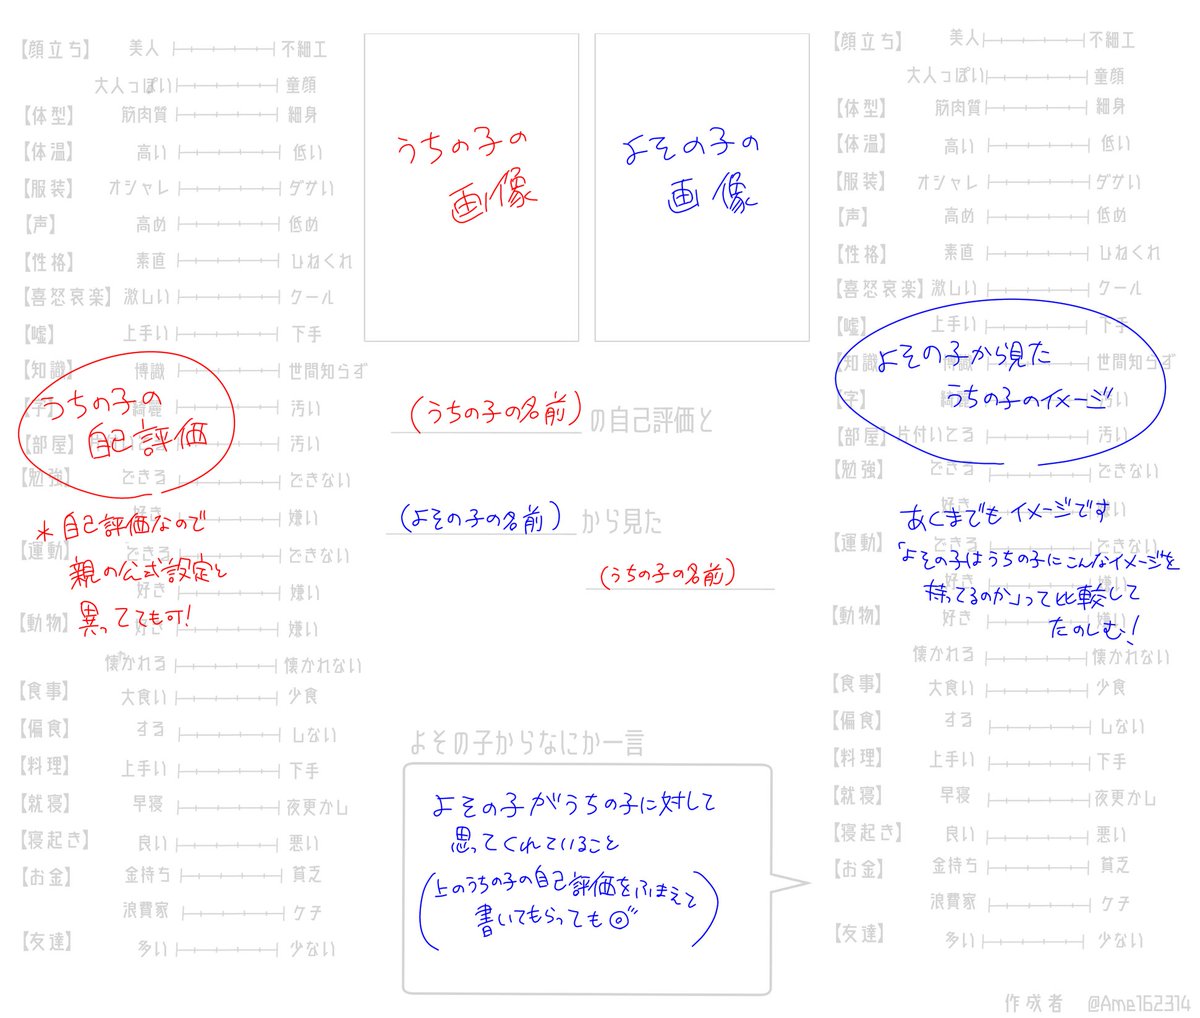 【顔立ち】 美人 不細工
大人っぽい 童顔
【体型】 筋肉質 細身
【体温】 高い 低い
【服装】 オシャレ ダサい
【声】 高め 低め
【性格】 素直 ひねくれ
【喜怒哀楽】 激しい クール
【嘘】 上手い 下手
【知識】 博識 世間知らず
【字】 綺麗 汚い
【部屋】 汚い
【勉強】 できる できない
好き 嫌い
【運動】 できる できない
好き 嫌い
【動物】 好き 嫌い
懐かれる 懐かれない
【食事】 大食い 少食
【偏食】 する しない
【料理】 上手い 下手
【就寝】 早寝 夜更かし
【寝起き】 良い 悪い
【お金】 金持ち 貧乏
浪費家 ケチ
【友達】 多い 少ない
うちの子の
自己評価
*自己評価なので
親の公式設定と
異ってても可!
うちの子の
画像
よその子の
画像
(うちの子の名前)の自己評価と
(よその子の名前)から見た
(うちの子の名前)
よその子からなにか一言
よその子がうちの子に対して
思ってくれていること
(上のうちの子の自己評価をふまえて
書いてもらっても◎)
【顔立ち】 美人 不細工
大人っぽい 童顔
【体型】 筋肉質 細身
【体温】 高い 低い
【服装】 オシャレ ダサい
【声】 高め 低め
【性格】 素直 ひねくれ
【喜怒哀楽】 激しい クール
【嘘】 上手い 下手
【知識】 博識 世間知らず
【字】 綺麗 汚い
【部屋】 片付いてる 汚い
【勉強】 できる できない
好き 嫌い
【運動】 できる できない
好き 嫌い
【動物】 好き 嫌い
懐かれる 懐かれない
【食事】 大食い 少食
【偏食】 する しない
【料理】 上手い 下手
【就寝】 早寝 夜更かし
【寝起き】 良い 悪い
【お金】 金持ち 貧乏
浪費家 ケチ
【友達】 多い 少ない
よその子から見た
うちの子のイメージ
あくまでもイメージです
「よその子はうちの子にこんなイメージを
持ってるのか」って比較して
たのしむ!
作成者 @Ame162314